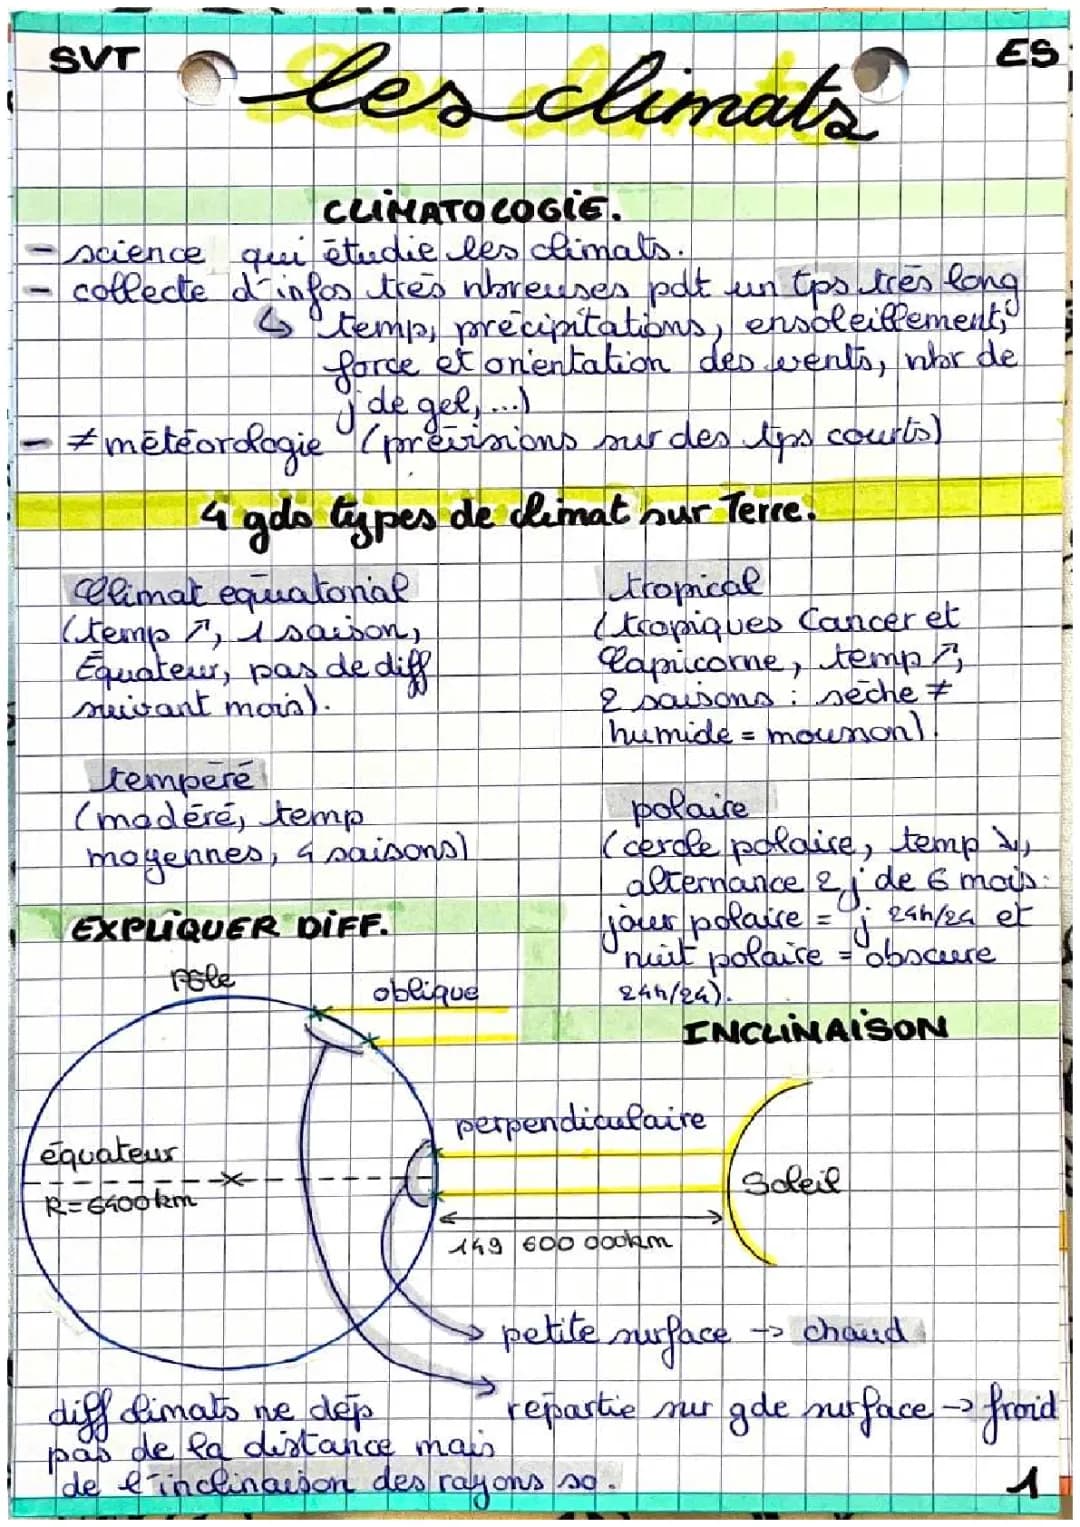 SVT
ES
les climats
CLIMATOLOGIE.
- science qui étudie les climats.
- collecte d'infos très nbreuses pdt un tps très long
↳ temp, précipitations, ensoleillement,
force et orientation des vents, nbr de
j de gel, ...)
- ≠ météorologie (prévisions sur des tps courts)
4 gds types de climat sur Terre.
Climat équatorial
(temp ↗, 1 saison,
Équateur, pas de diff
suivant mois).
tropical
(tropiques Cancer et
Capricorne, temp ↗,
2 saisons : sèche ≠
humide = mousson).
tempéré
(modéré, temp
moyennes, 4 saisons)
polaire
(cercle polaire, temp ↘,
alternance 2 j de 6 mois :
jour polaire = j 24h/24 et
nuit polaire = obscure
24h/24).
EXPLIQUER DIFF.
INCLINAISON
Pôle
oblique
perpendiculaire
équateur
R=6400km
Soleil
149 600 000km
petite surface -> chaud
répartie sur gde surface -> froid
diff climats ne dép
pas de la distance mais
de l'inclinaison des rayons so.
1